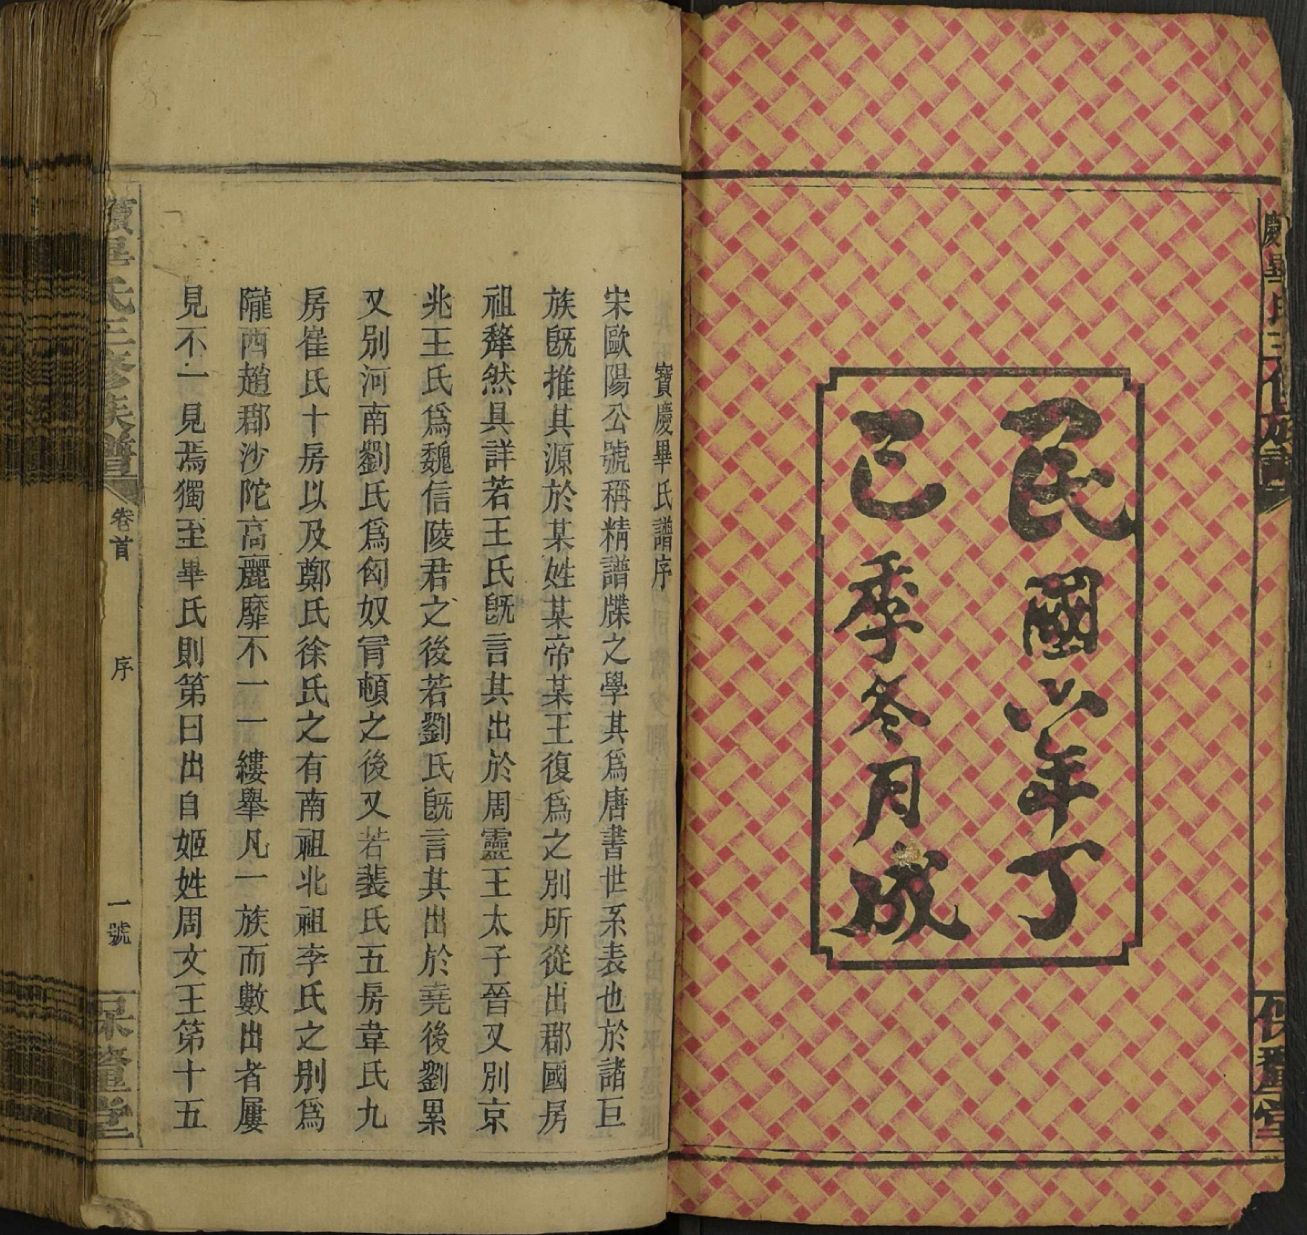 慶畢氏三修族譜
保釐堂
民國六年丁
巳季冬月成
寶慶畢氏譜序
宋歐陽公號稱精譜牒之學其爲唐書世系表也於諸巨
族旣推其源於某姓某帝某王復爲之別所從出郡國房
祖犖然具詳若王氏旣言其出於周靈王太子晉又別京
兆王氏爲魏信陵君之後若劉氏旣言其出於堯後劉累
又別河南劉氏爲匈奴冐頓之後又若裴氏五房韋氏九
房崔氏十房以及鄭氏徐氏之有南祖北祖李氏之別爲
隴西趙郡沙陀高麗靡不一一縷舉凡一族而數出者屢
見不一見焉獨至畢氏則第曰出自姬姓周文王第十五
寶畢氏三修族譜
卷首
序
一號
保釐堂